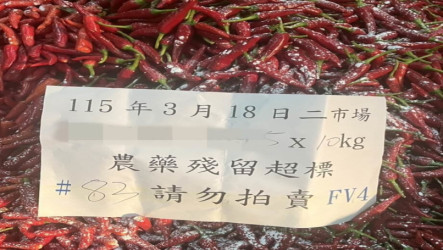 115 年 3 月 18 日 二市場
5 x 10kg
農藥殘留超標
# 83 請勿拍賣 FV4